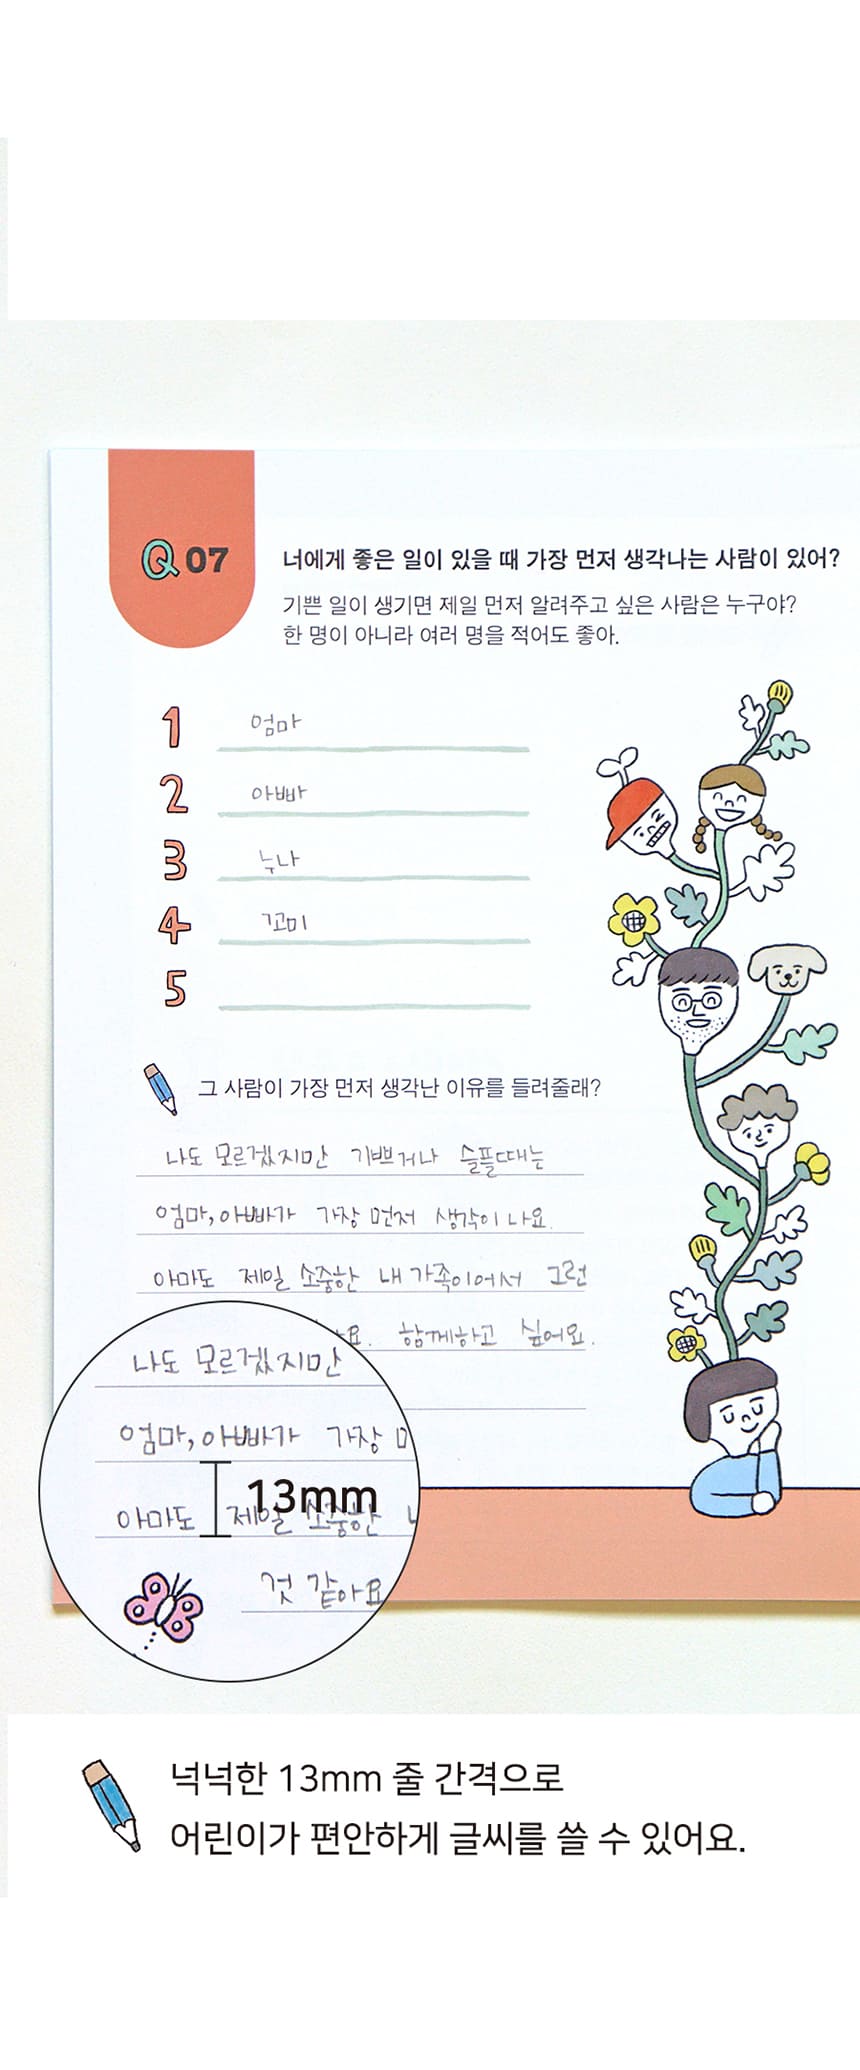 Q 07
너에게 좋은 일이 있을 때 가장 먼저 생각나는 사람이 있어?
기쁜 일이 생기면 제일 먼저 알려주고 싶은 사람은 누구야?
한 명이 아니라 여러 명을 적어도 좋아.
1 엄마
2 아빠
3 누나
4 꼬미
5
그 사람이 가장 먼저 생각난 이유를 들려줄래?
나도 모르겠지만 기쁘거나 슬플때는
엄마, 아빠가 가장 먼저 생각이 나요.
아마도 제일 소중한 내 가족이어서 그런
함께하고 싶어요.
나도 모르겠지만
엄마, 아빠가 가장
아마도 제일 소중한
13mm
것 같아요
넉넉한 13mm 줄 간격으로
어린이가 편안하게 글씨를 쓸 수 있어요.